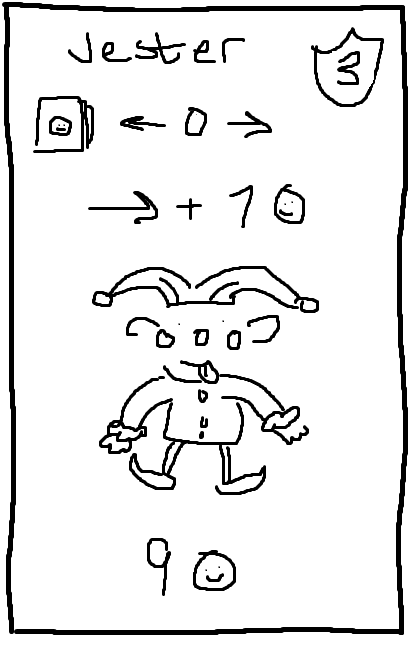 Jester
3
← 0 →
→ + 1
9